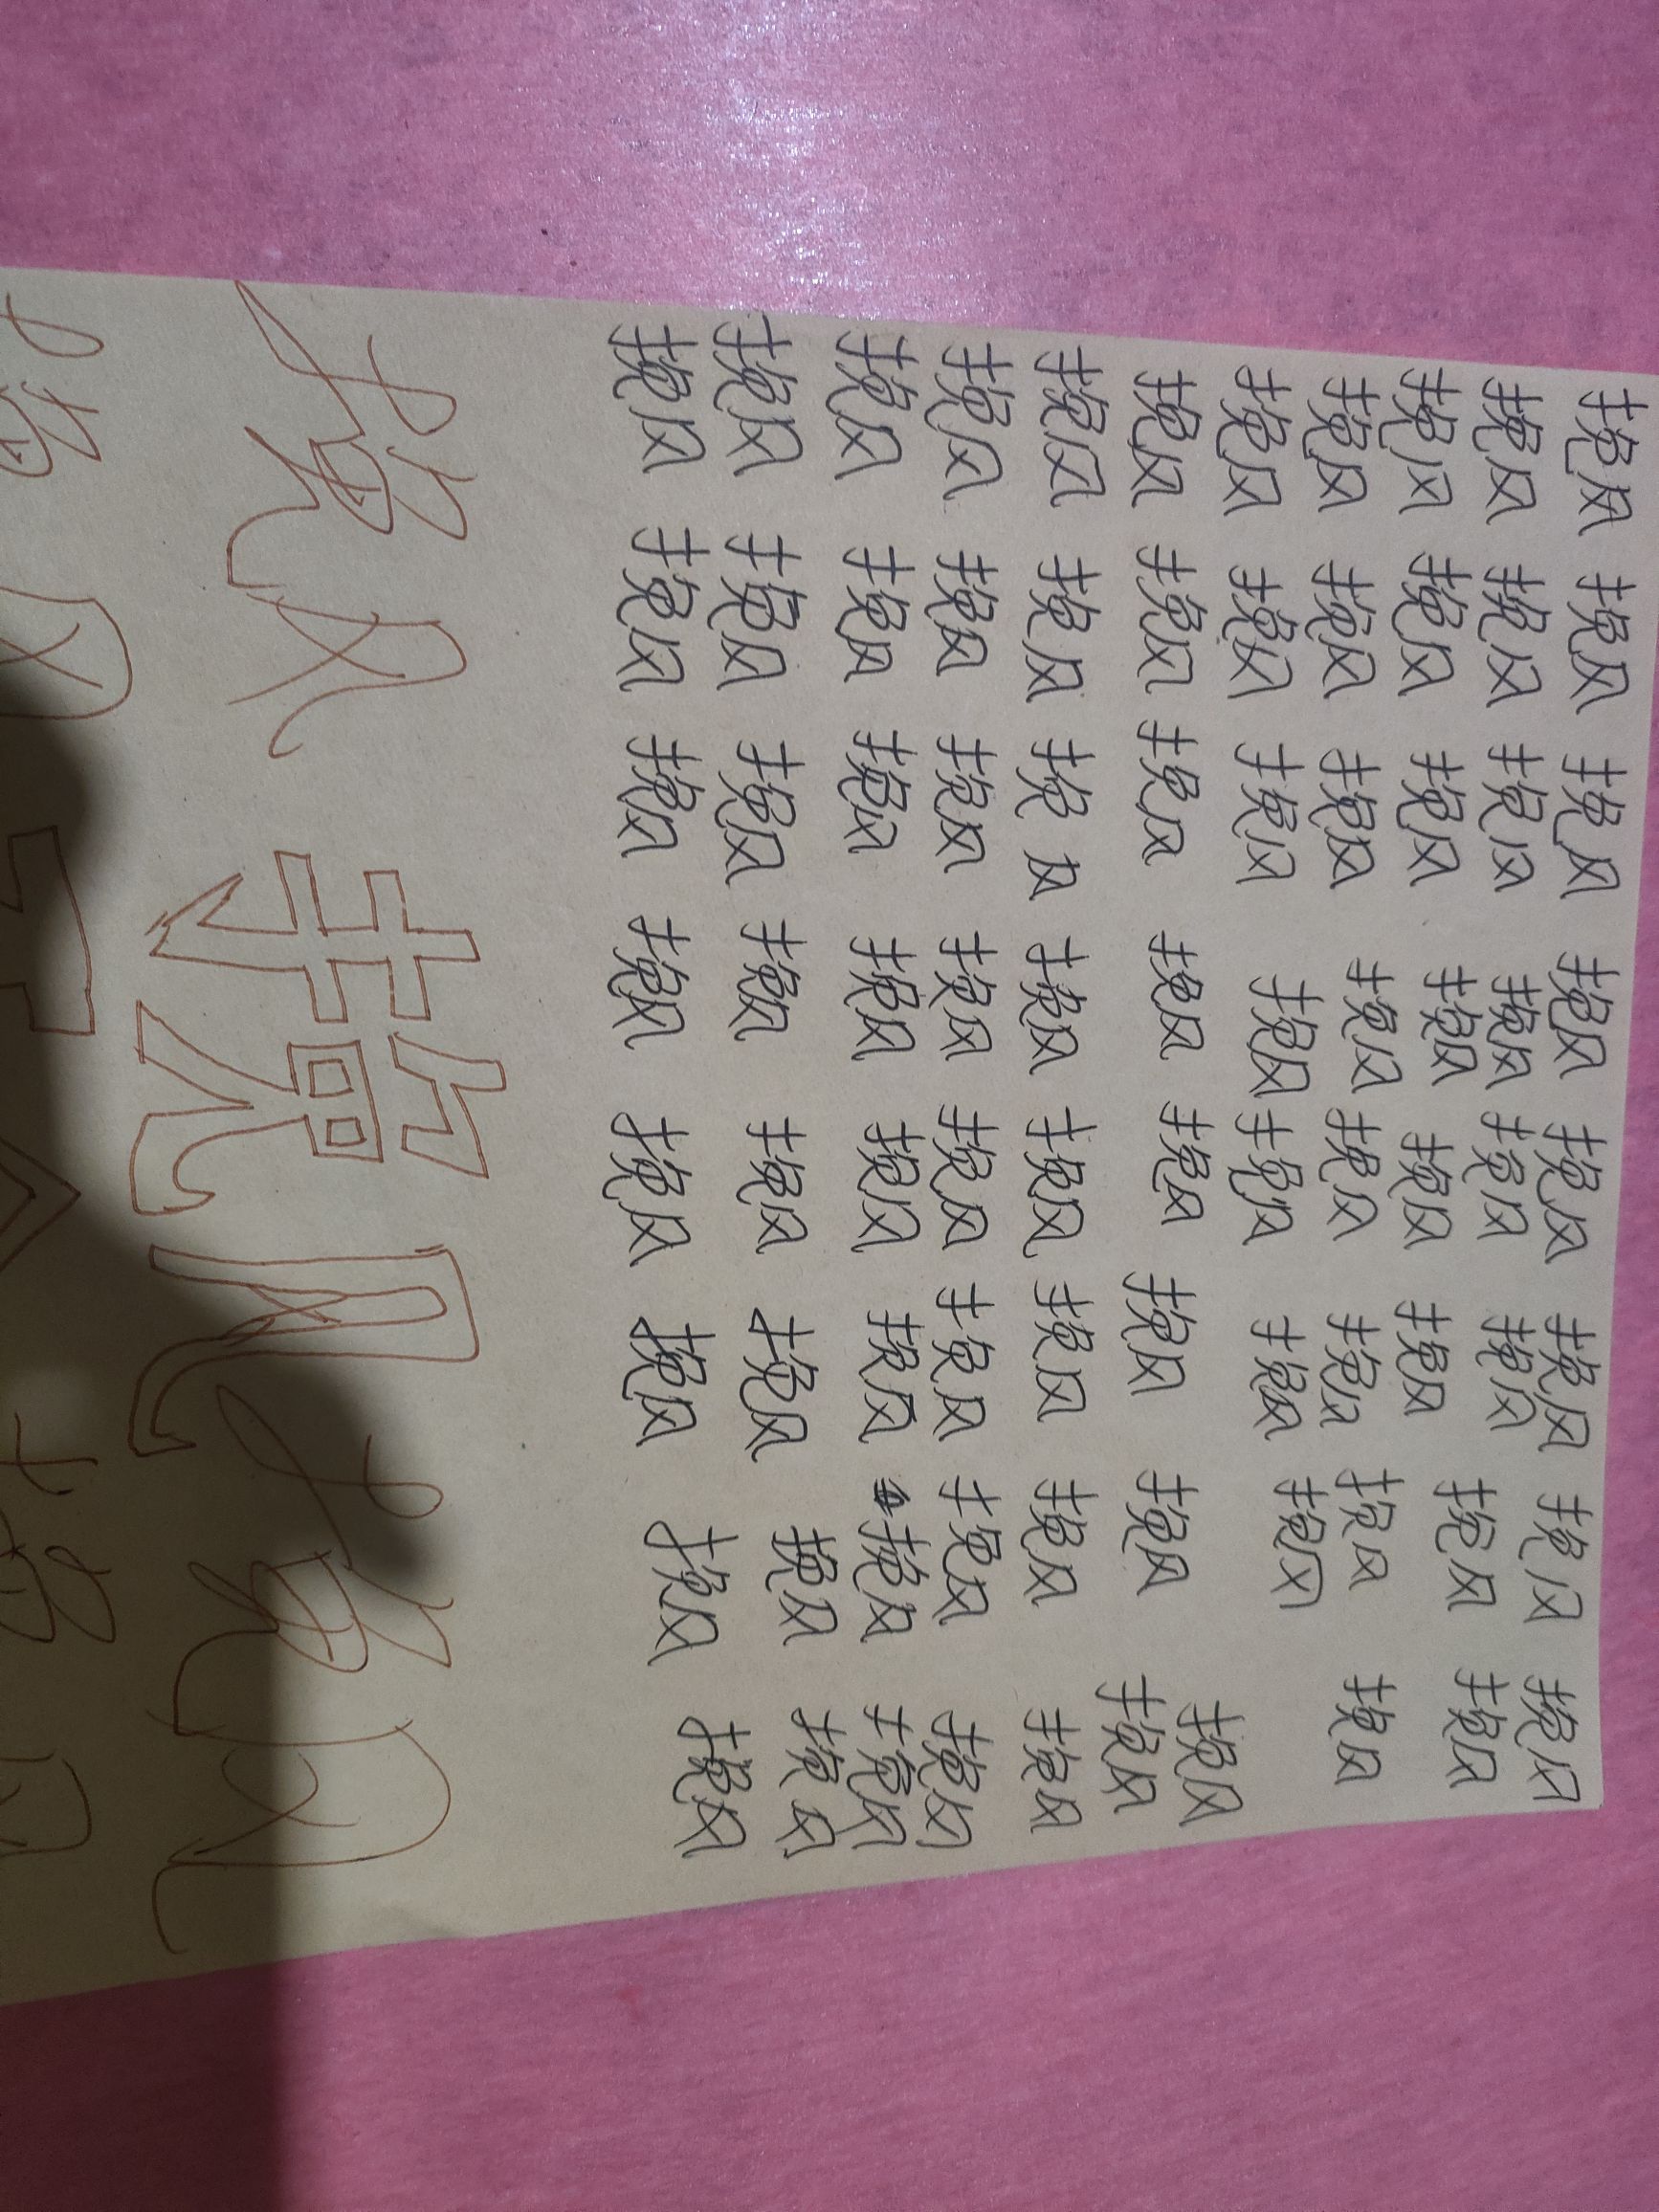 挽风 挽风 挽风 挽风 挽风 挽风 挽风 挽风
挽风 挽风 挽风 挽风 挽风 挽风 挽风 挽风
挽风 挽风 挽风 挽风 挽风 挽风
挽风 挽风 挽风 挽风 挽风 挽风 挽风 挽风
挽风 挽风 挽风 挽风 挽风 挽风 挽风 挽风
挽风 挽风 挽风 挽风 挽风 挽风 挽风 挽风
挽风 挽风 挽风 挽风 挽风 挽风 挽风 挽风
挽风 挽风 挽风 挽风 挽风 挽风 挽风 挽风
挽风 挽风 挽风 挽风 挽风 挽风 挽风 挽风
挽风 挽风 挽风 挽风 挽风 挽风 挽风 挽风
挽风 挽风 挽风 挽风 挽风 挽风 挽风 挽风
挽风 挽风 挽风